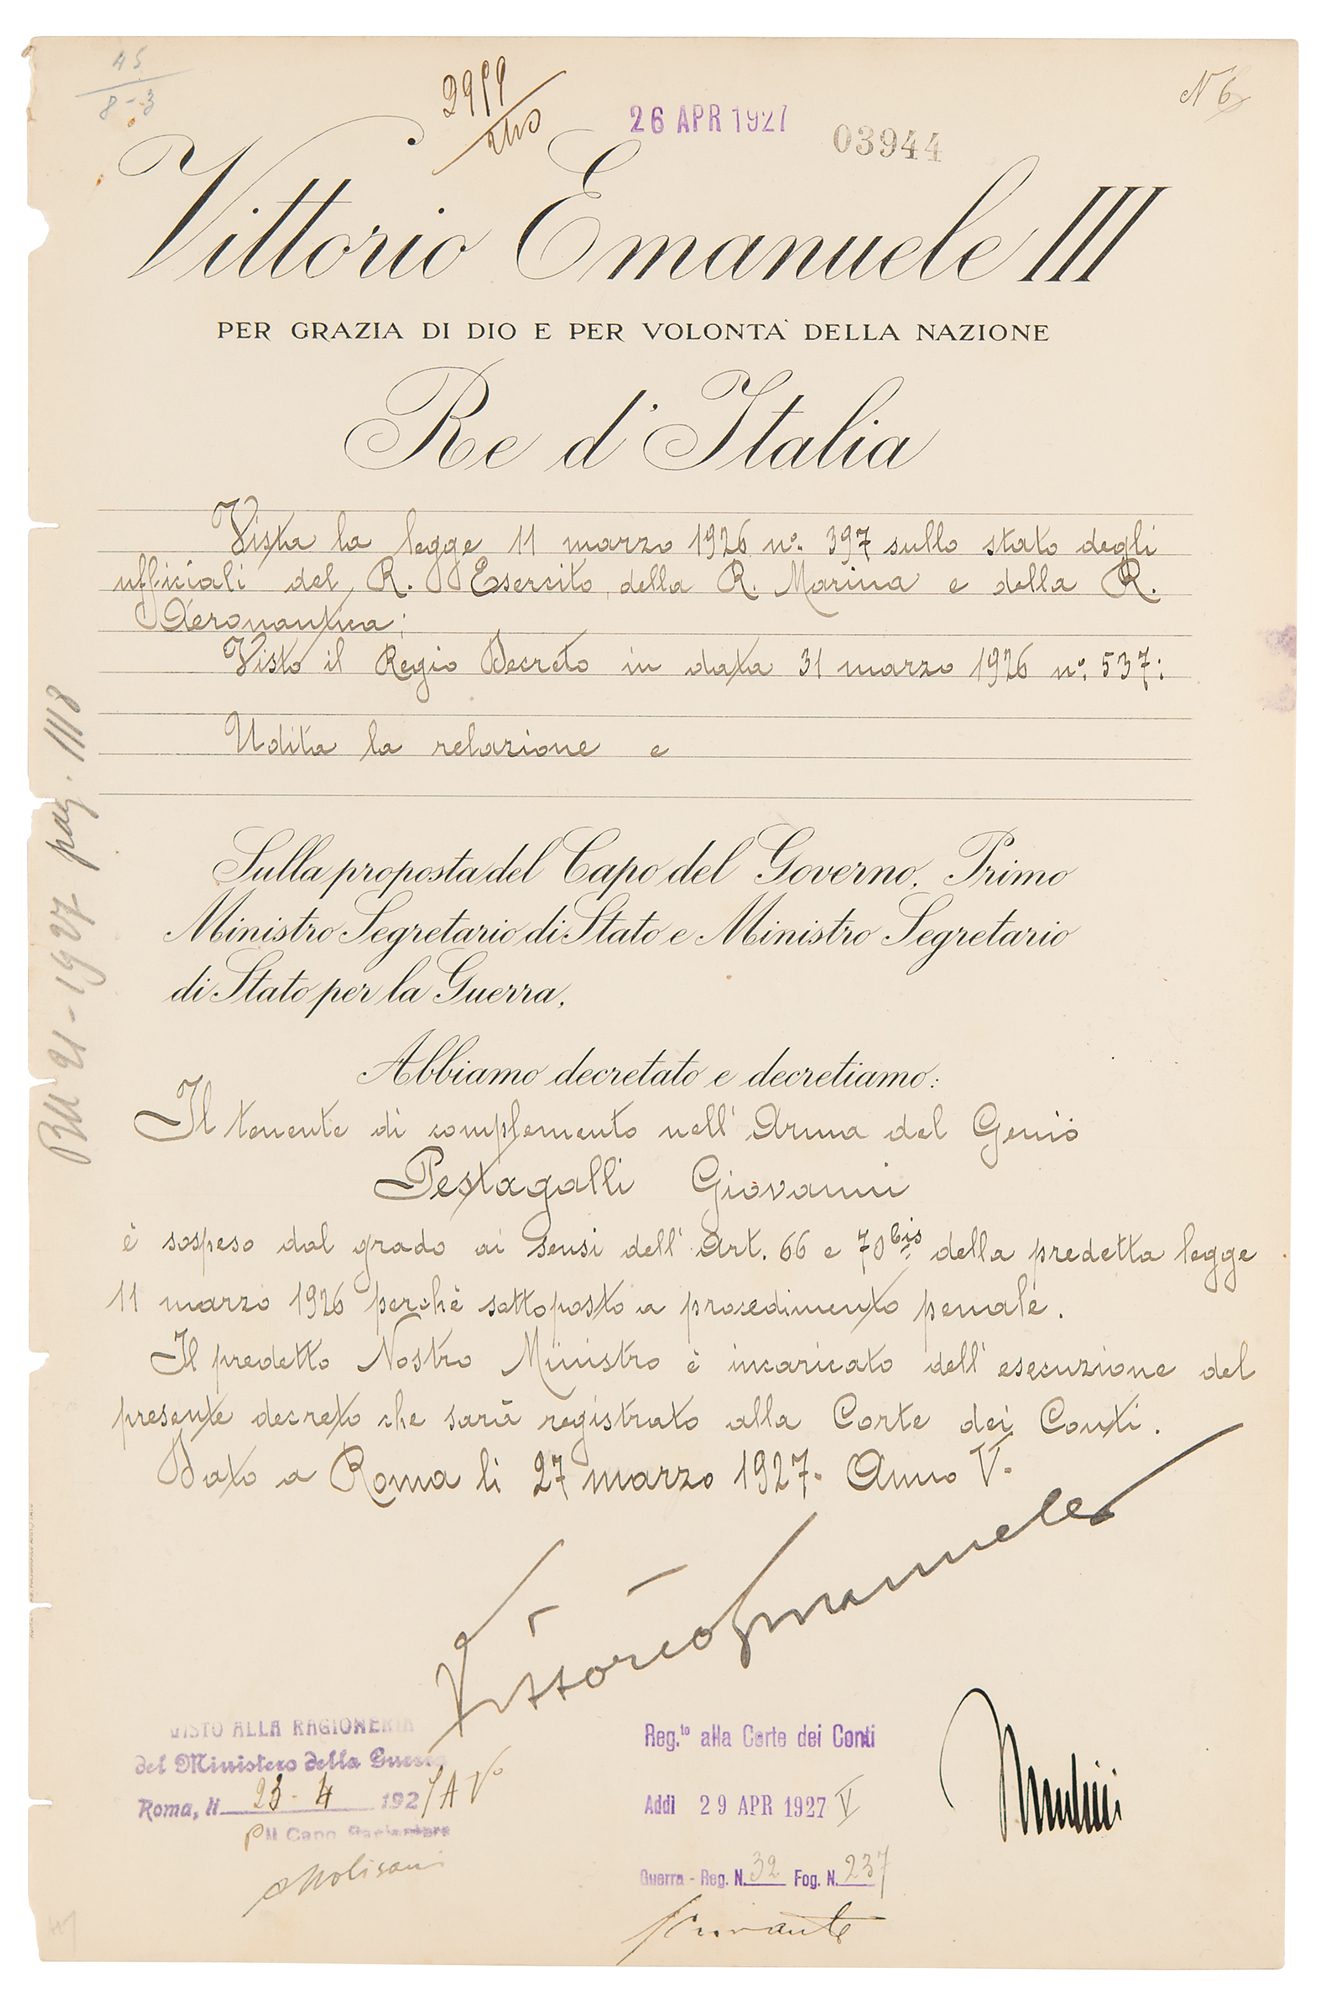 45
8-3
2999
26 APR 1927
03944
N 6
Vittorio Emanuele III
PER GRAZIA DI DIO E PER VOLONTÀ DELLA NAZIONE
Re d'Italia
Vista la legge 11 marzo 1926 nº. 397 sullo stato degli
ufficiali del R. Esercito, della R. Marina e della R.
Aeronautica;
Visto il Regio Decreto in data 31 marzo 1926 nº. 537;
Udita la relazione e
Sulla proposta del Capo del Governo, Primo
Ministro Segretario di Stato e Ministro Segretario
di Stato per la Guerra,
Abbiamo decretato e decretiamo:
Il tenente di complemento nell'Arma del Genio
Pestagalli Giovanni
è sospeso dal grado ai sensi dell'Art. 66 e 70 bis della predetta legge
11 marzo 1926 perchè sottoposto a procedimento penale.
Il predetto Nostro Ministro è incaricato dell'esecuzione del
presente decreto che sarà registrato alla Corte dei Conti.
Dato a Roma li 27 marzo 1927. Anno V.
Vittorio Emanuele
Mussolini
VISTO ALLA RAGIONERIA
del Ministero della Guerra
Roma, li 23-4 1927 A Vº
Pil Capo Ragioniere
Molisani
Reg.to alla Corte dei Conti
Addì 29 APR 1927 V
Guerra - Reg. N. 32 Fog. N. 237
BU 21-1927 pag. 1118